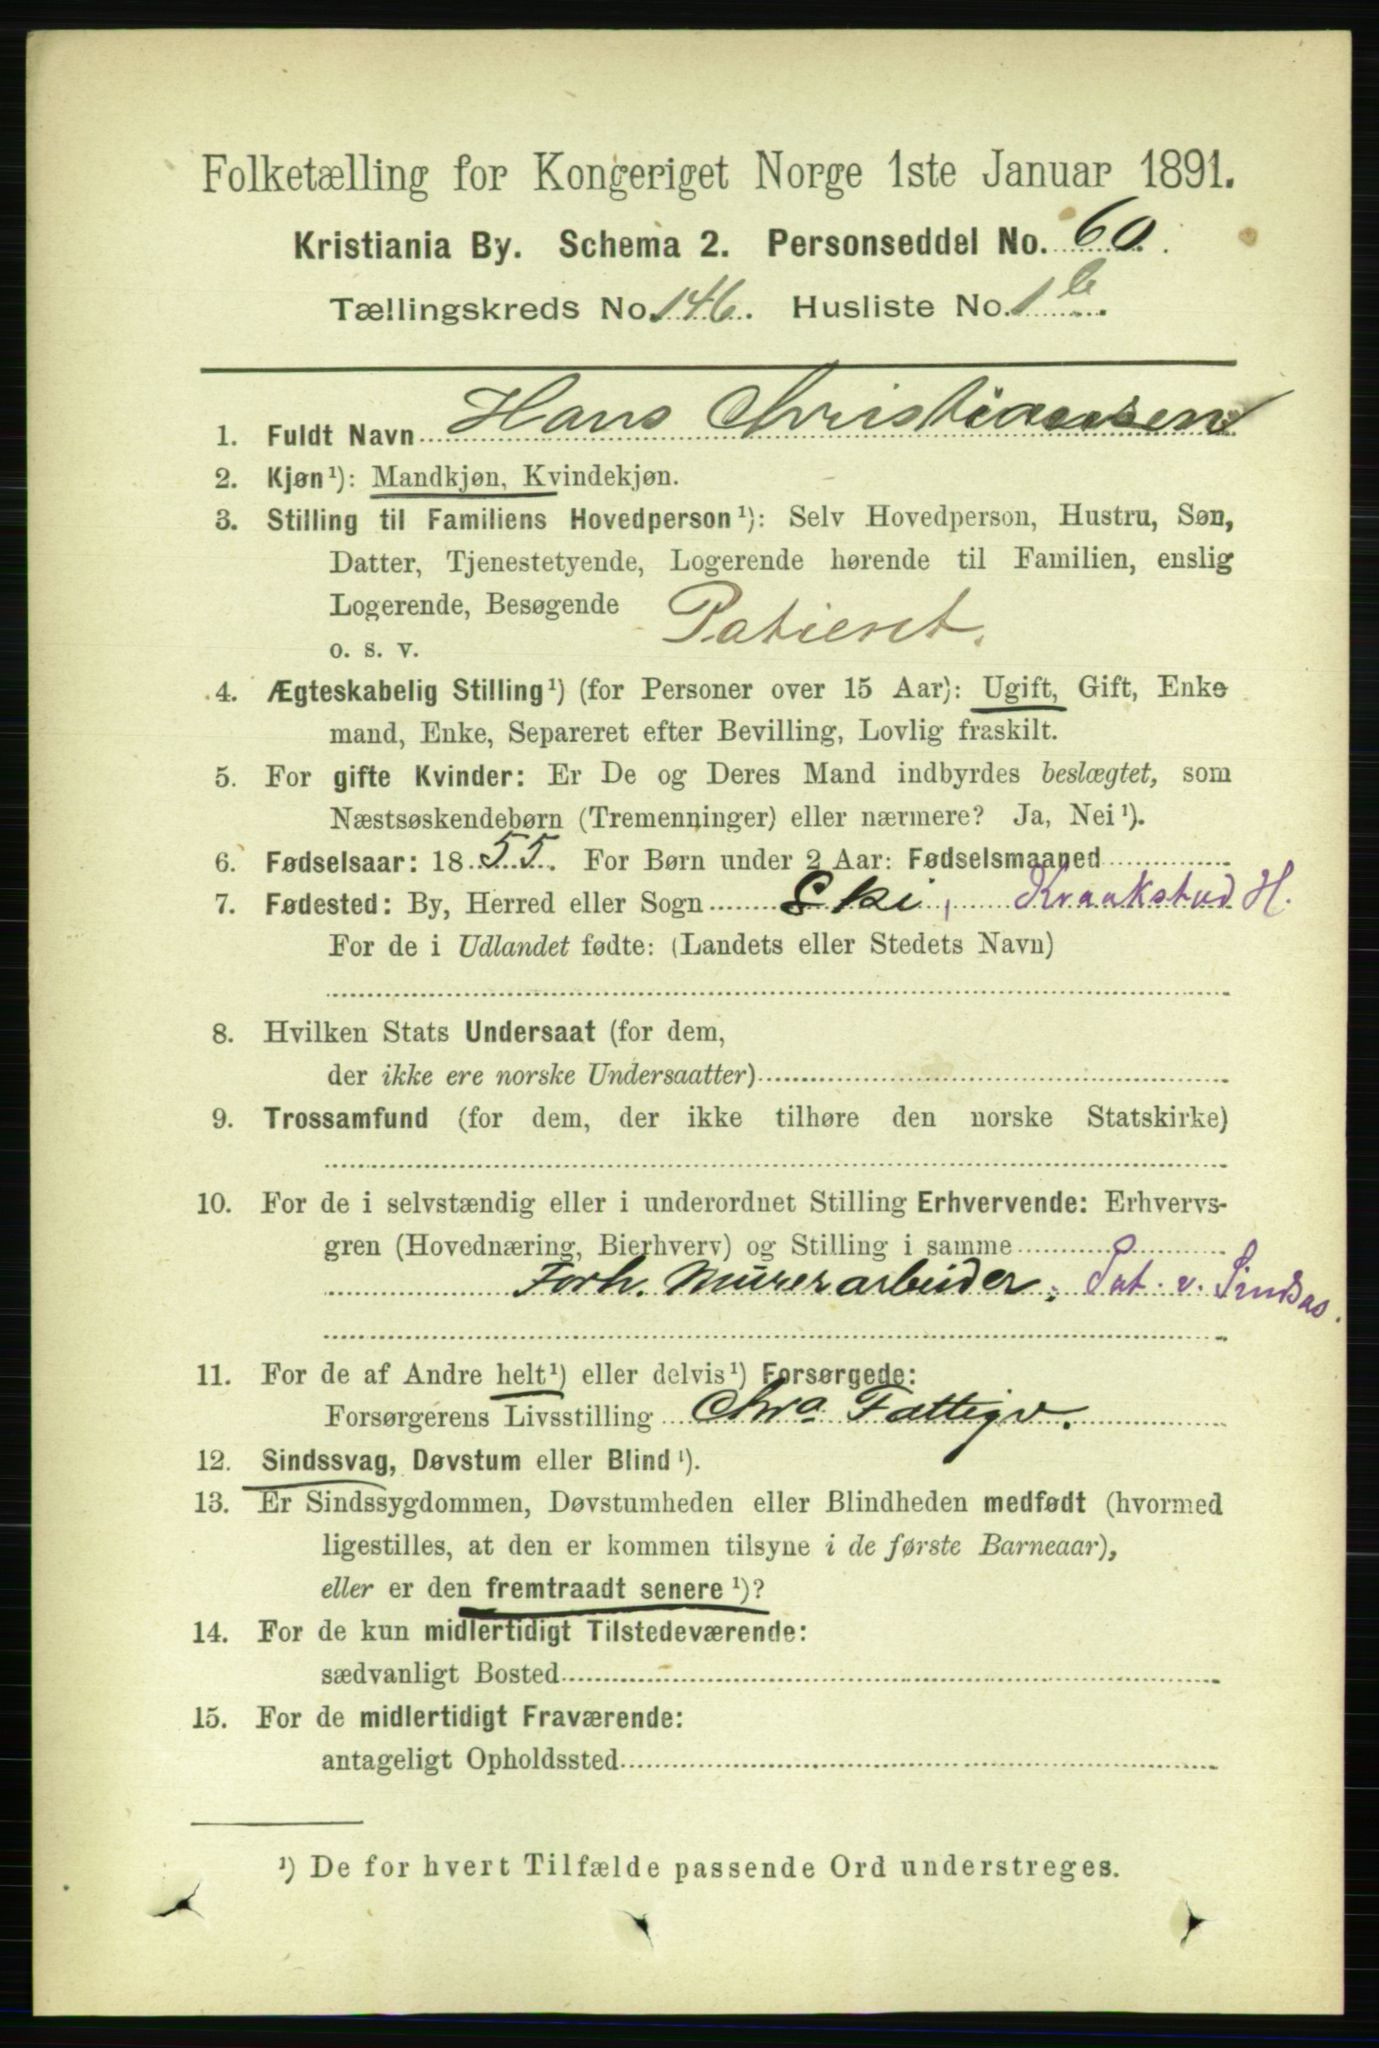 Folketælling for Kongeriget Norge 1ste Januar 1891.
Kristiania By. Schema 2. Personseddel No. 60.
Tællingskreds No. 146. Husliste No. 1 b
1. Fuldt Navn Hans Christiansen
2. Kjøn¹): Mandkjøn, Kvindekjøn.
3. Stilling til Familiens Hovedperson¹): Selv Hovedperson, Hustru, Søn,
Datter, Tjenestetyende, Logerende hørende til Familien, enslig
Logerende, Besøgende
o. s. v. Patient.
4. Ægteskabelig Stilling¹) (for Personer over 15 Aar): Ugift, Gift, Enke-
mand, Enke, Separeret efter Bevilling, Lovlig fraskilt.
5. For gifte Kvinder: Er De og Deres Mand indbyrdes beslægtet, som
Næstsøskendebørn (Tremenninger) eller nærmere? Ja, Nei¹).
6. Fødselsaar: 1855. For Børn under 2 Aar: Fødselsmaaned
7. Fødested: By, Herred eller Sogn Ski, Kraakstad H.
For de i Udlandet fødte: (Landets eller Stedets Navn)
8. Hvilken Stats Undersaat (for dem,
der ikke ere norske Undersaatter)
9. Trossamfund (for dem, der ikke tilhøre den norske Statskirke)
10. For de i selvstændig eller i underordnet Stilling Erhvervende: Erhvervs-
gren (Hovednæring, Bierhverv) og Stilling i samme
Forh. Murerarbeider, Pat. v. Sindsas.
11. For de af Andre helt¹) eller delvis¹) Forsørgede:
Forsørgerens Livsstilling Chra Fattigv.
12. Sindssvag, Døvstum eller Blind¹).
13. Er Sindssygdommen, Døvstumheden eller Blindheden medfødt (hvormed
ligestilles, at den er kommen tilsyne i de første Barneaar),
eller er den fremtraadt senere¹)?
14. For de kun midlertidigt Tilstedeværende:
sædvanligt Bosted
15. For de midlertidigt Fraværende:
antageligt Opholdssted
¹) De for hvert Tilfælde passende Ord understreges.